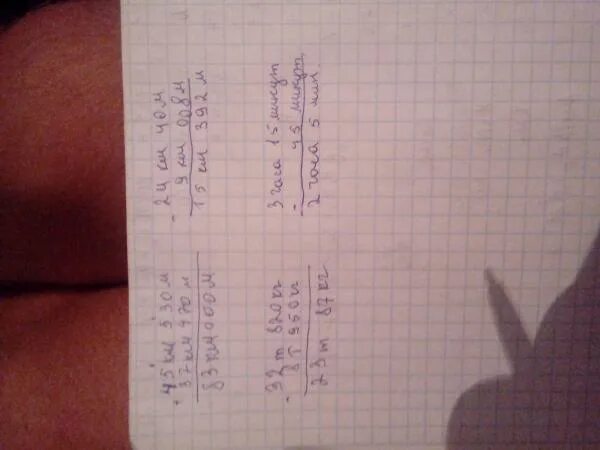 + 45 км 530 м
37 км 470 м
83 км 000 м
- 24 км 40 м
9 км 008 м
15 км 392 м
- 32 т 820 кг
8 т 950 кг
23 т 87 кг
3 часа 15 минут
- 45 минут
2 часа 5 мин.